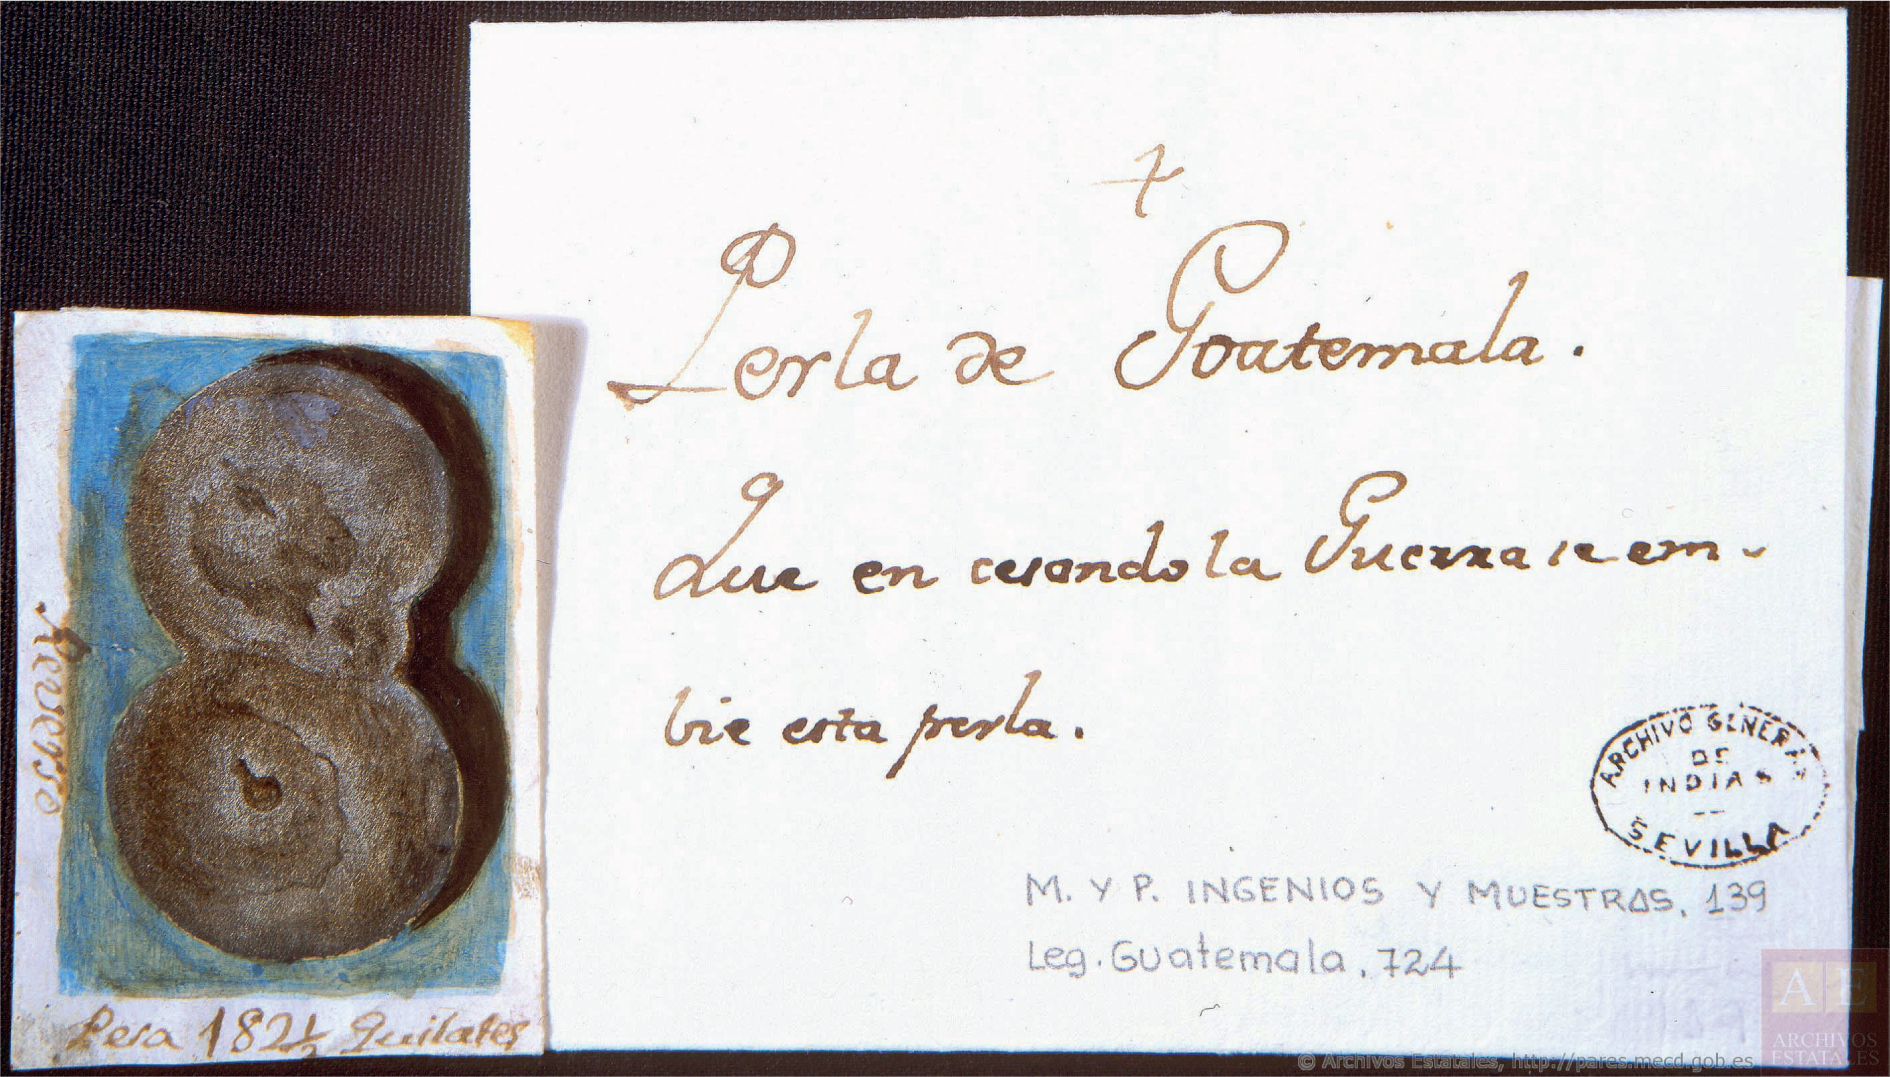 Perla de Goatemala.
Que en cesando la Guerra se em-
bie esta perla.
ARCHIVO GENERAL
DE
INDIAS
SEVILLA
M. Y P. INGENIOS Y MUESTRAS, 139
Leg. Guatemala, 724
Reverso
Pesa 182 1/2 Quilates
AE
ARCHIVOS
ESTATALES
© Archivos Estatales, http://pares.mecd.gob.es